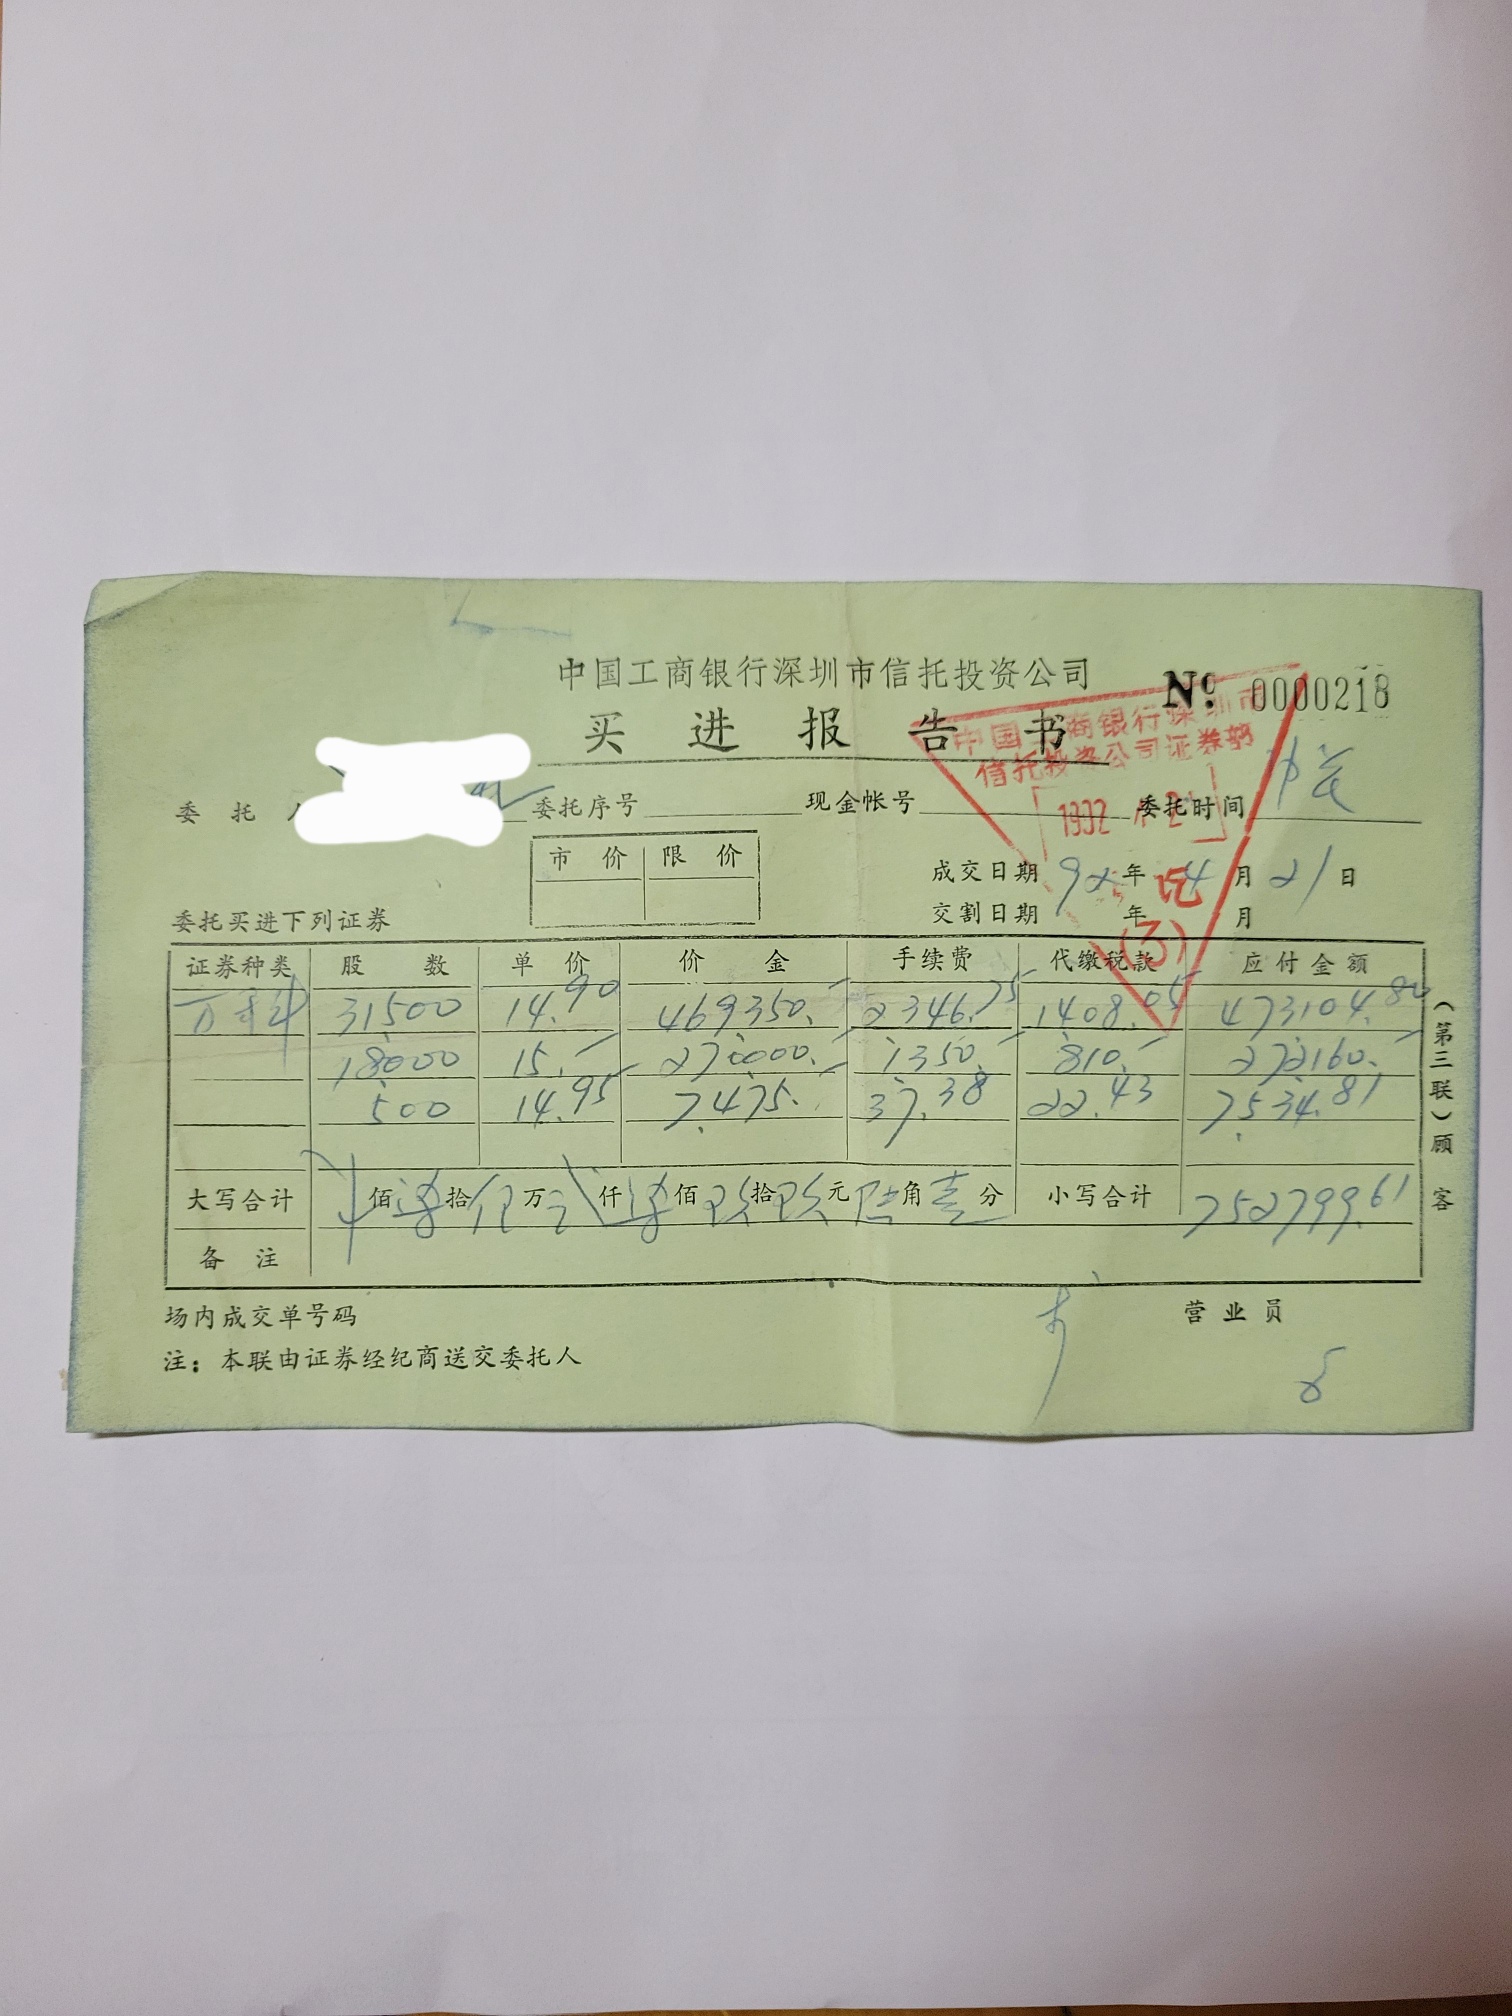 中国工商银行深圳市信托投资公司
№ 0000218
买进报告书
中国工商银行深圳市
信托投资公司证券部
1992 2
讫
(3)
委托人 委托序号 现金帐号 委托时间
市价 限价
成交日期 92年4月21日
交割日期 年 月
委托买进下列证券
证券种类 股数 单价 价金 手续费 代缴税款 应付金额
31500 14.90 469350.- 2346.75 1408.05 473104.80
18000 15.- 270000.- 1350.- 810.- 272160.-
500 14.95 7475.- 37.38 22.43 7534.81
大写合计 佰 拾 伍万 仟 佰 玖拾玖元陆角壹分 小写合计 752799.61
备注
(第三联)顾客
场内成交单号码 营业员
注：本联由证券经纪商送交委托人